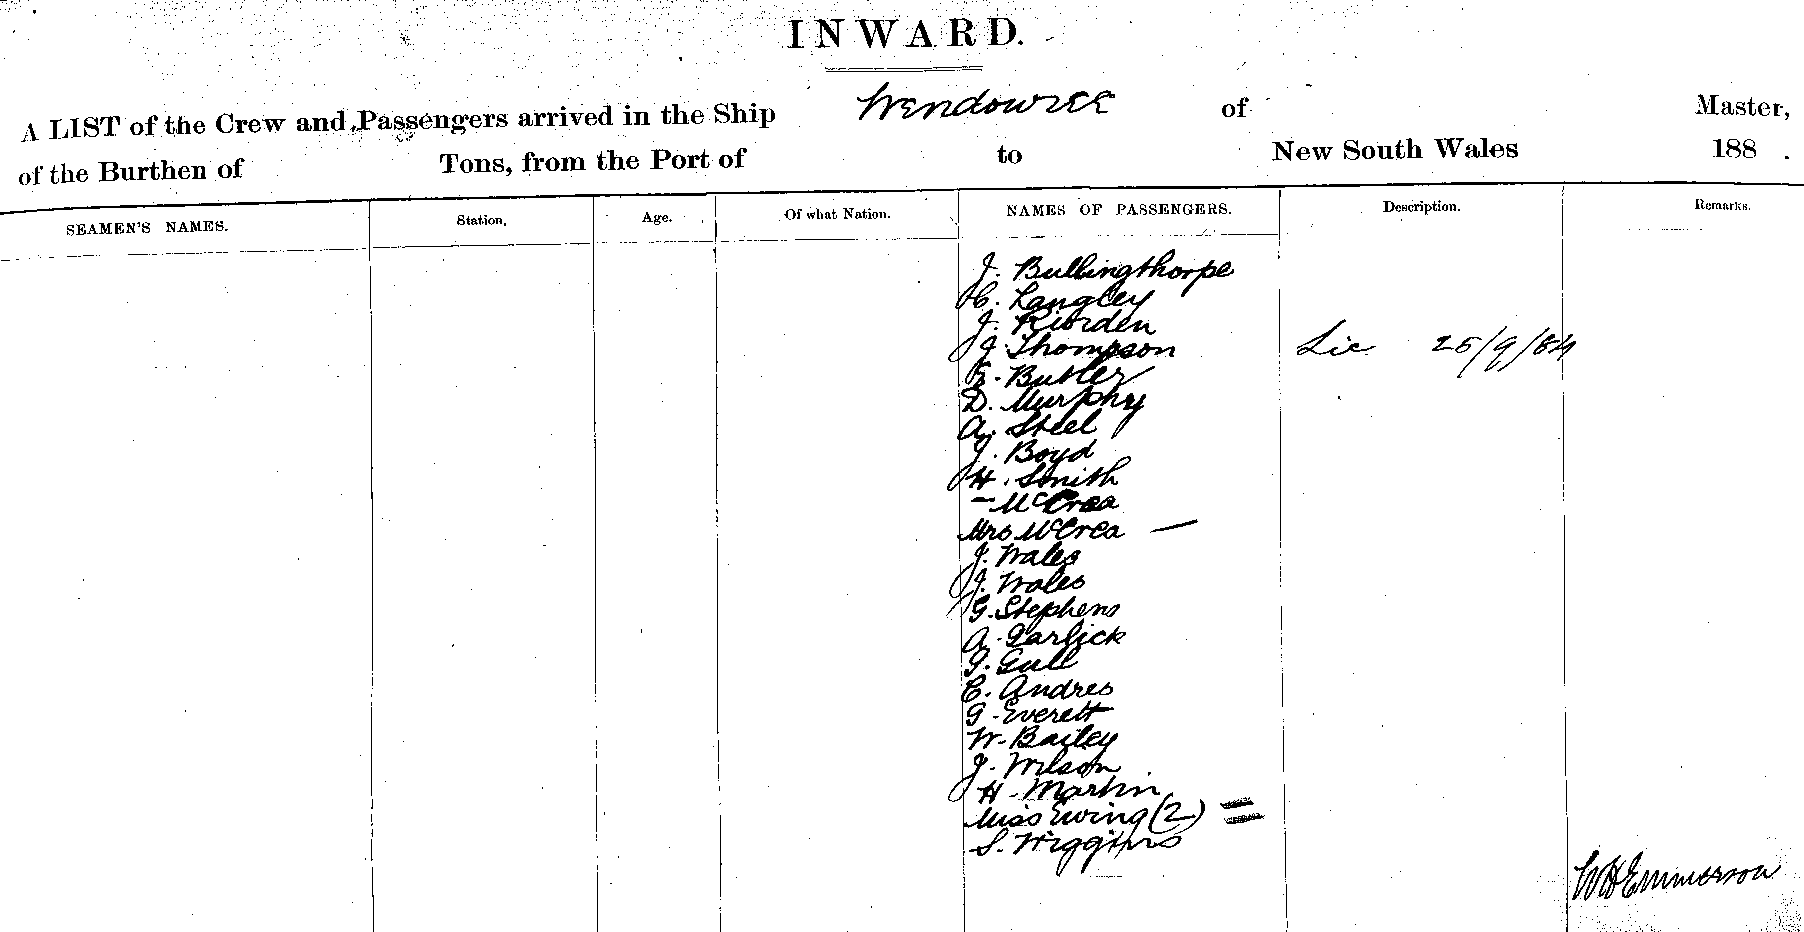 INWARD.
A LIST of the Crew and Passengers arrived in the Ship Wendouree of Master,
of the Burthen of Tons, from the Port of to New South Wales 188 .
SEAMEN'S NAMES. Station, Age. Of what Nation. NAMES OF PASSENGERS. Description. Remarks.
J. Bullingthorpe
C. Langley
J. Riorden
J. Thompson Lic 25/9/84
E. Butler
D. Murphy
A. Steel
J. Boyd
H. Smith
- McCrea
Mrs McCrea —
J. Wales
J. Wales
G. Stephens
A. Garlick
G. Gull
C. Andres
G. Everett
W. Bailey
J. Wilson
H. Martin
Miss Ewing (2) =
S. Wiggins
WHEmmerson